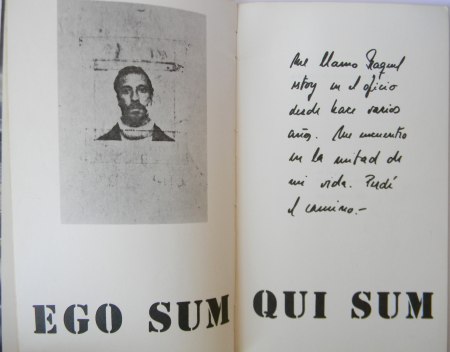 Me llamo Raquel
estoy en el oficio
desde hace varios
años. Me encuentro
en la mitad de
mi vida. Perdí
el camino.-
EGO SUM QUI SUM